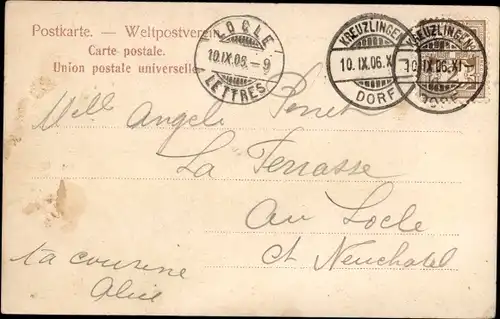 Postkarte. — Weltpostverein
Carte postale.
Union postale universelle
LOCLE
10.IX.06.–9
LETTRES
KREUZLINGEN
10.IX.06.XI
DORF
KREUZLINGEN
10.IX.06.XI–
DORF
Mell Angele Perret
La Terrasse
Au Locle
ct Neuchatel
ta cousine
Alice